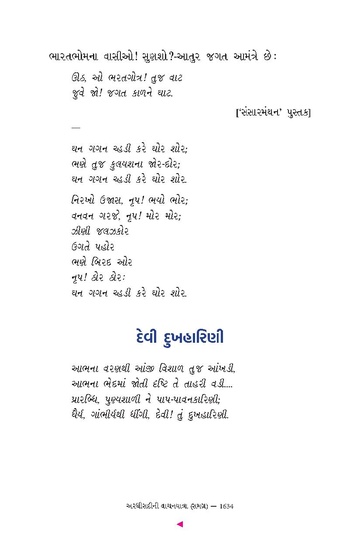 ભારતભોમના વાસીઓ! સુણશો?-આતુર જગત આમંત્રે છે:
ઊઠ, ઓ ભરતગોત્ર! તુજ વાટ
જુવે જો! જગત કાળને ઘાટ.
['સંસારમંથન' પુસ્તક]
—
ઘન ગગન ચ્હડી કરે ઘોર શોર;
ભણે તુજ કુલયશના જોર-દોર;
ઘન ગગન ચ્હડી કરે ઘોર શોર.
નિરખો ઉજાસ, નૃપ! ભયો ભોર;
વનવન ગરજે, નૃપ! મોર મોર;
ઝીણી જલઝકોર
ઉગતે પહોર
ભણે બિરદ ઓર
નૃપ! ઠોર ઠોર:
ઘન ગગન ચ્હડી કરે ઘોર શોર.
દેવી દુખહારિણી
આભના વરણથી આંજી વિશાળ તુજ આંખડી,
આભના ભેદમાં જોતી દૃષ્ટિ તે તાહરી વડી....
પ્રારબ્ધિ, પુણ્યશાળી ને પાપ-પાવનકારિણી;
ધૈર્ય, ગાંભીર્યથી ધીંગી, દેવી! તું દુખહારિણી.
અરધીસદીની વાચનયાત્રા (સમગ્ર) — 1634